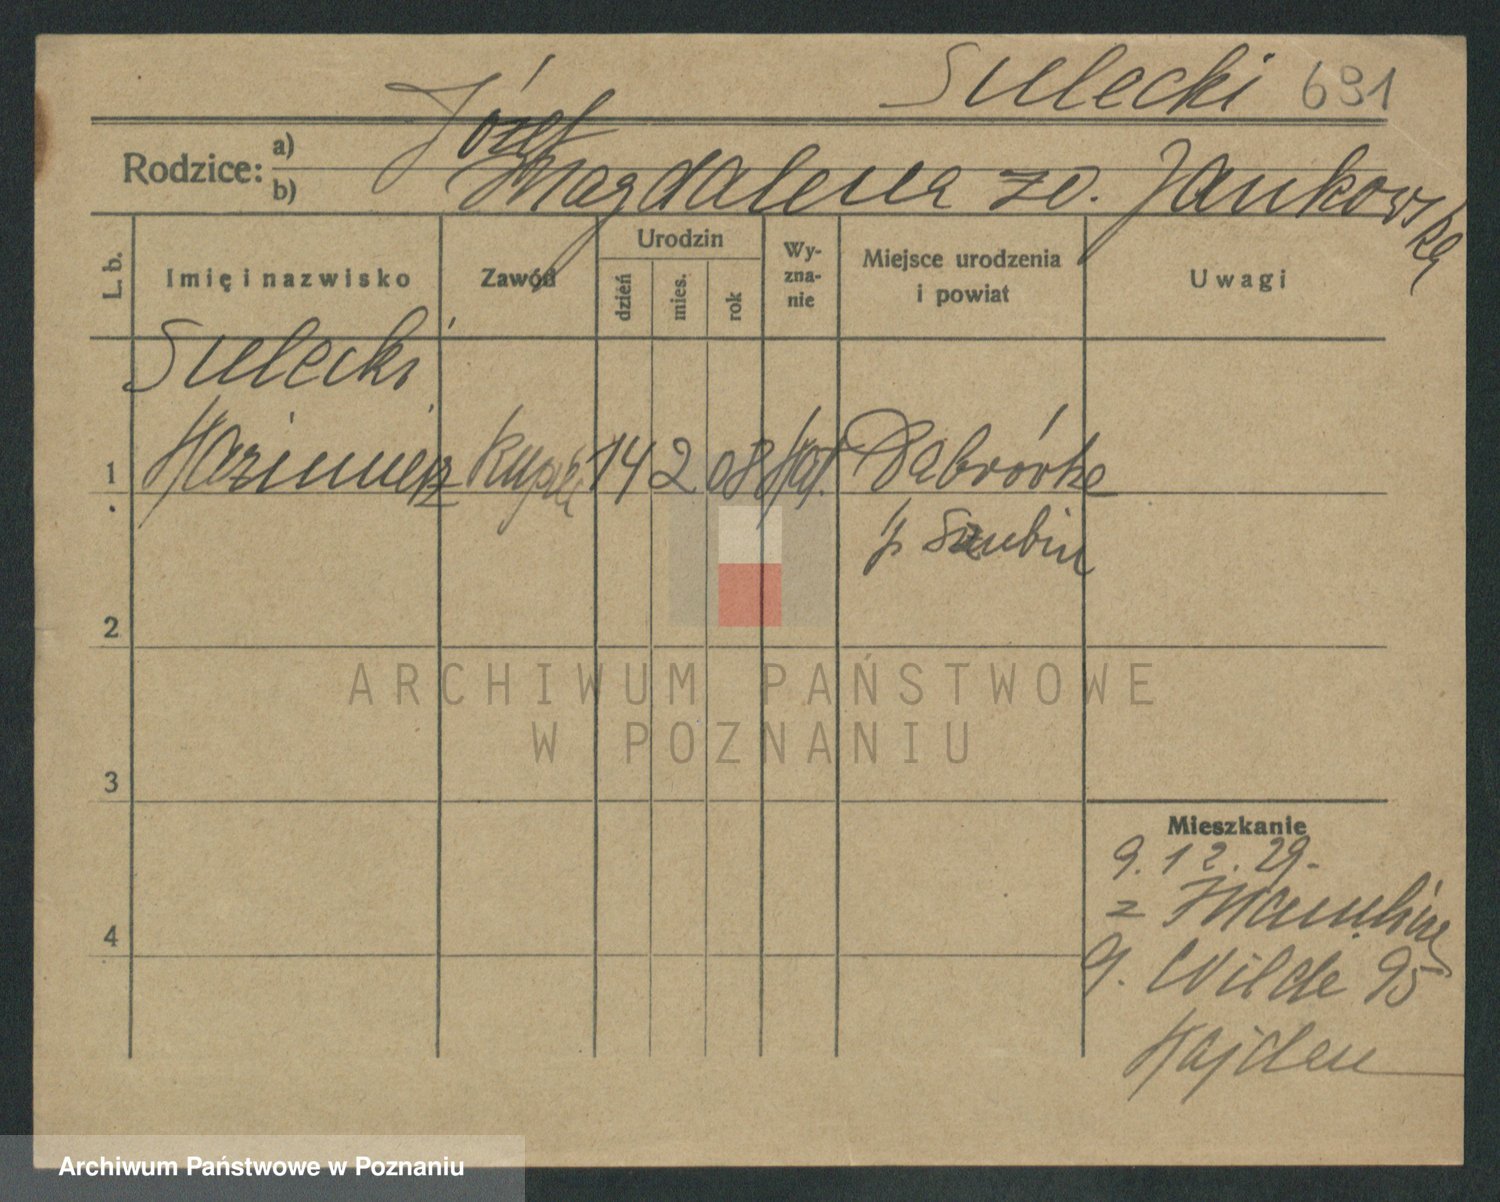 Sulecki 691
Józef
Rodzice: a)
b) Magdalena zd. Jankowska
L. b. Imię i nazwisko Zawód Urodzin dzień mies. rok Wyznanie Miejsce urodzenia i powiat Uwagi
Sulecki
1 Kazimierz 14 2 08 kat. Dąbrówka
p. Szubin
2
ARCHIWUM PAŃSTWOWE
W POZNANIU
3
Mieszkanie
9.12.29.
z
4
G. Wilde 95
Archiwum Państwowe w Poznaniu